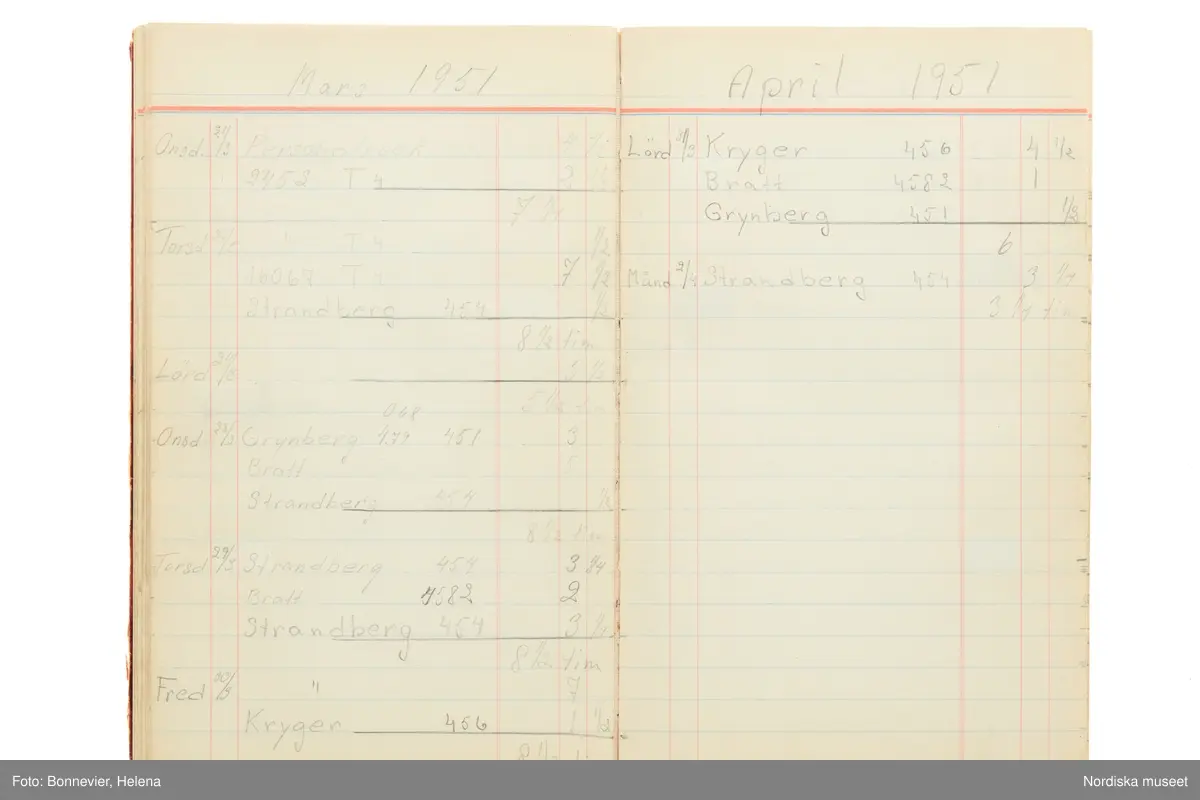 Mars 1951
Onsd. 21/3 Personalrock 4 1/2
2952 T 4
7
Torsd " T 4 1/2
16067 T 7 1/2
Strandberg 454 1/2
8 1/2 tim
Lörd 3 1/2
5 1/2 tim
068
Onsd 28/3 Grynberg 479 451 3
Bratt 5
Strandberg 454 1/2
8 1/2 tim
Torsd 29/3 Strandberg 454 3 1/4
Bratt 4582 2
Strandberg 454 3 1/4
8 1/2 tim
Fred 30/3 " 7
Kryger 456 1 1/2
8 1/2
April 1951
Lörd 31/3 Kryger 456 4 1/2
Bratt 4582 1
Grynberg 451 1/2
6
Månd 2/4 Strandberg 454 3 1/4
3 1/4 tim
Foto: Bonnevier, Helena
Nordiska museet